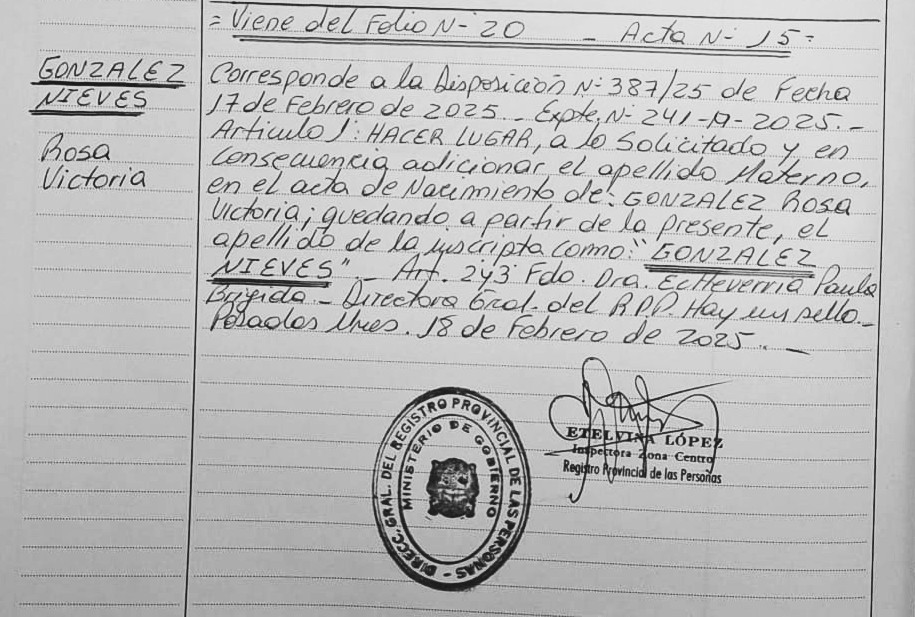 = Viene del Folio N- 20 - Acta N- 15 =
GONZALEZ
NIEVES
Rosa
Victoria
Corresponde a la Disposición N- 387/25 de Fecha
17 de Febrero de 2025. - Expte. N- 241-A-2025. -
Articulo 1: HACER LUGAR, a lo Solicitado y en
Consecuencia adicionar, el apellido Materno,
en el acta de Nacimiento de: GONZALEZ Rosa
Victoria; quedando a partir de la presente, el
apellido de la inscripta como: "GONZALEZ
NIEVES". - Art. 243 Fdo. Dra. Echeverria Paula
Brigida. - Directora Gral. del R.P.P. Hay un sello. -
Posadas Mnes. 18 de Febrero de 2025. -
DIRECC. GRAL. DEL REGISTRO PROVINCIAL DE LAS PERSONAS -
MINISTERIO DE GOBIERNO
ETELVINA LÓPEZ
Inspectora Zona Centro
Registro Provincial de las Personas